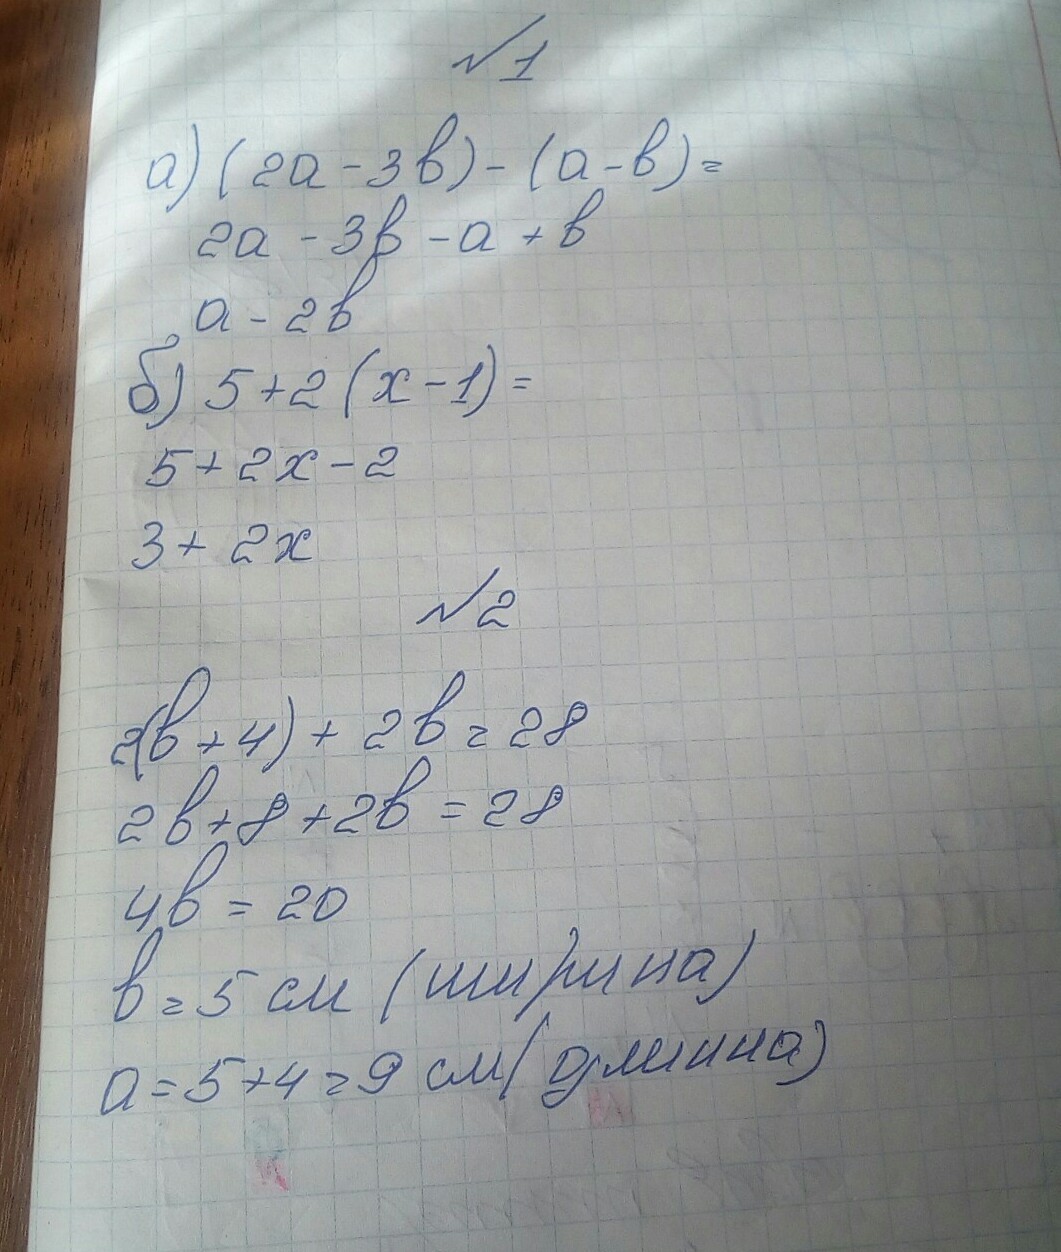 №1
а) (2a - 3b) - (a - b) =
2a - 3b - a + b
a - 2b
б) 5 + 2 (x - 1) =
5 + 2x - 2
3 + 2x
№2
2(b + 4) + 2b = 28
2b + 8 + 2b = 28
4b = 20
b = 5 см (ширина)
a = 5 + 4 = 9 см (длинна)